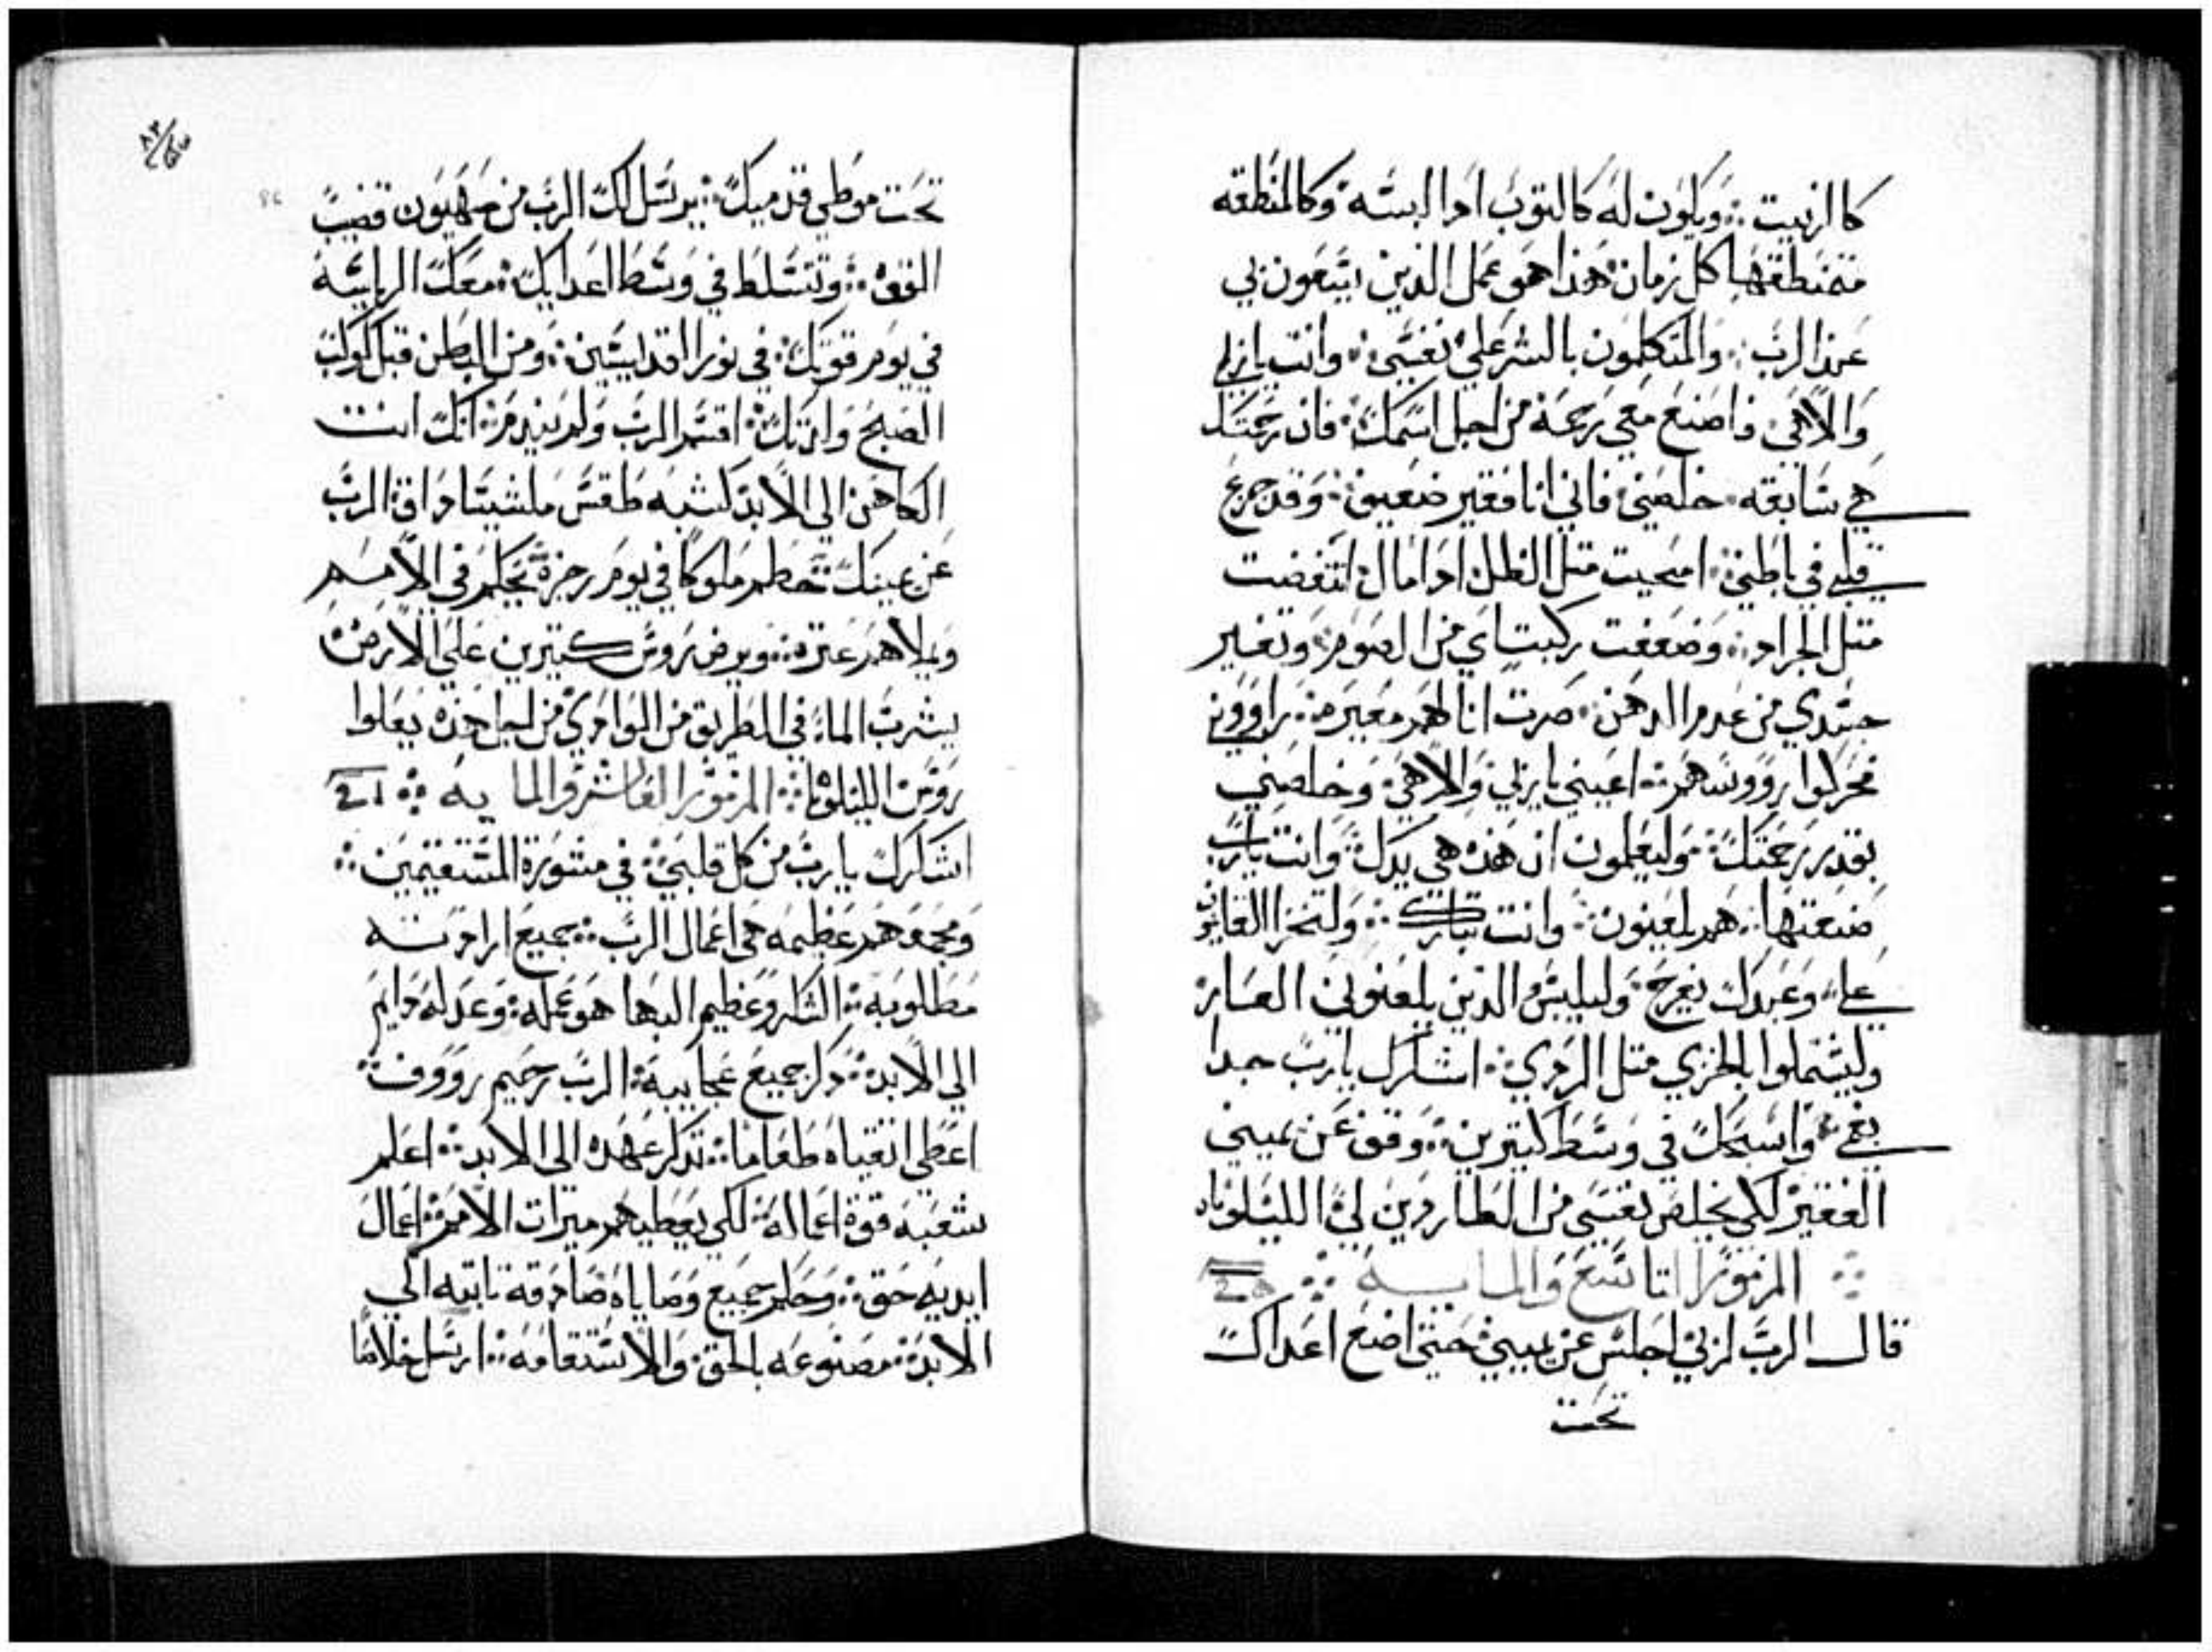 كالزيت ويكون له كالتوب ادا البسه وكالمنطقه
متمنطق بها كل زمان هذا هو عمل الذين يتبعون بي
عند الرب والمتكلمون بالشر علي نفسي وانت يا ربي
والاهي فاصنع معي رحمة من اجل اسمك فان رحمتك
هي سابقه خلصني فاني انا فقير ضعيف وقد جرع
قلبي في باطني امحيت متل الظل ادا مال انتفضت
متل الجراد وضعفت ركبتاي من الصوم وتغير
جسدي من عدم الدهن صرت انا لهم معيرة راووني
فحركوا رووسهم اعيني يا ربي والاهي وخلصني
بقدر رحمتك وليعلمون ان هذه هي يدك وانت يا رب
صنعتها هم يلعنون وانت تبارك ولتخزا القايمون
علي وعبدك يفرح وليلبس الذين يلعنوني العار
وليشتملوا بالخزي متل الردي اشكرك يا رب جدا
بفمي واسبحك في وسط كتيرين وقف عن يميني
الفقير لكي يخلص نفسي من الطاردين لي الليلوياه
المزمور التاسع والمايه
قال الرب لربي اجلس عن يميني حتى اضع اعداك
تحت
٨٣
تحت موطي قدميك يرسل لك الرب من صهيون قضيب
القوه وتتسلط في وسط اعدايك معك الرياسة
في يوم قوتك في نور القديسين ومن البطن قبل كوكب
الصبح ولدتك اقسم الرب ولم يندم انك انت
الكاهن الي الابد كشبه طقس ملشيساداق الرب
عن يمينك تحطم ملوكا في يوم رجزه يحكم في الامم
ويملاهم عترة ويرض روس كتيرين علي الارض
يشرب الماء في الطريق من الوادي من اجل هذه يعلوا
روس الليلويا المزمور العاشر والمايه
اشكرك يا رب من كل قلبي في مشورة المستقيمين
ومجمعهم عظيمه هي اعمال الرب جميع ارادته
مطلوبه الشكر وعظيم البها هو عمله وعدله دايم
الي الابد دكر جميع عجايبه الرب رحيم رووف
اعطي اتقياه طعاما تدكر عهده الي الابد اعلم
شعبه قوة اعماله لكي يعطيهم ميرات الامم اعمال
ايديه حق وحكم جميع وصاياه صادقه تابته الي
الابد مصنوعه بالحق والاستقامه ارسل خلاصا